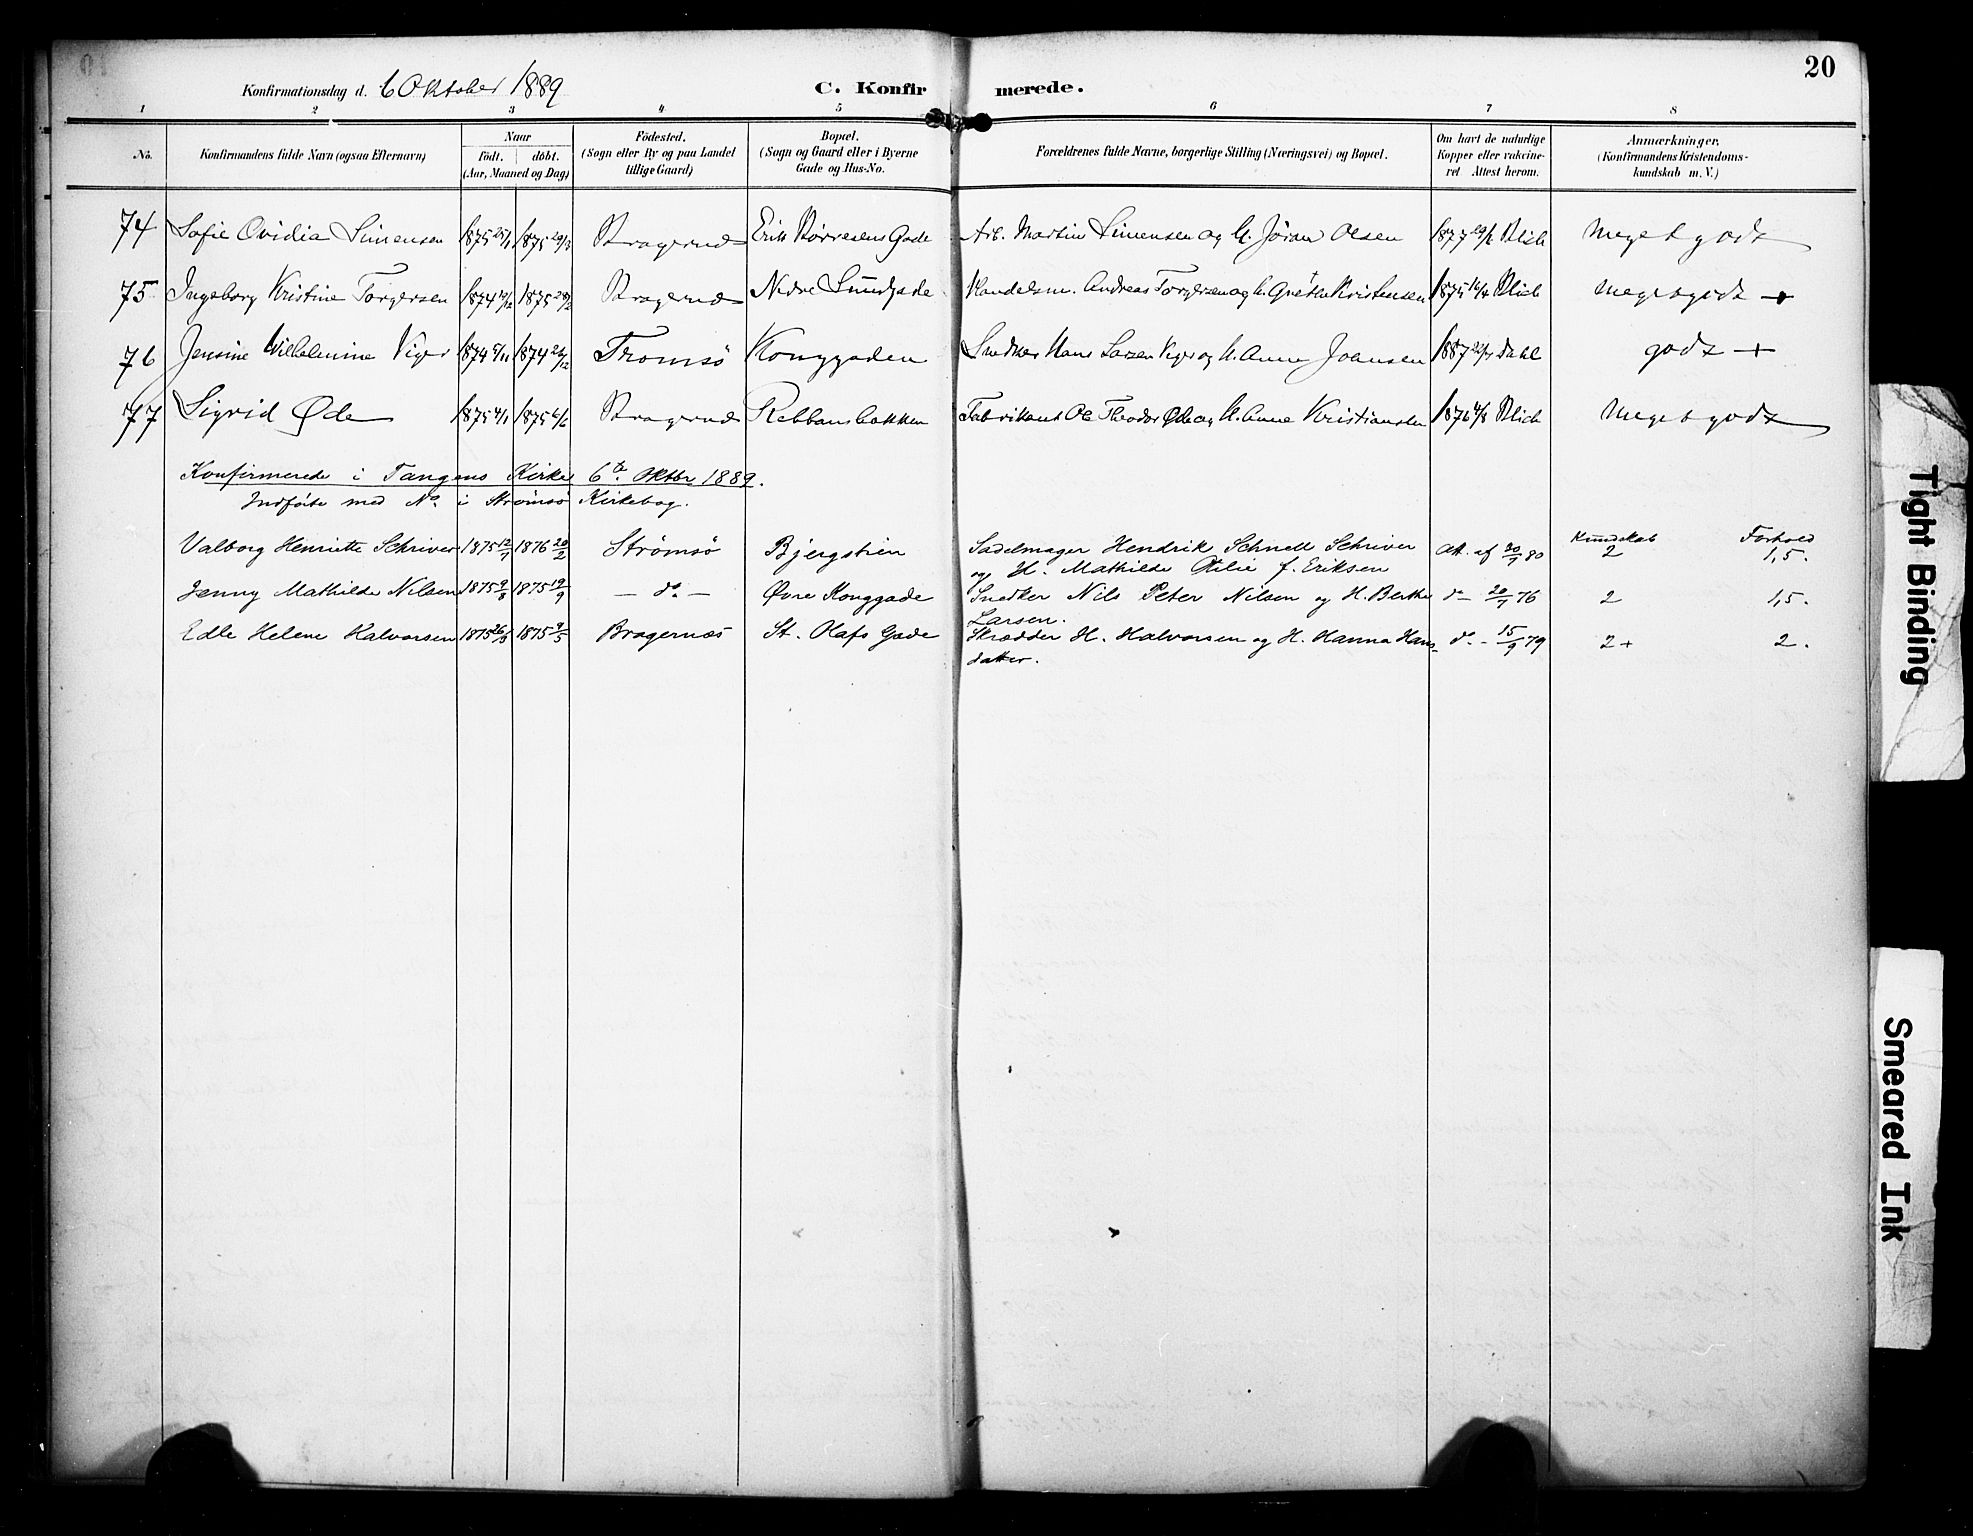 20
Konfirmationsdag d. 6 Oktober 1889
C. Konfirmerede.
1 2 3 4 5 6 7 8
No.
Konfirmandens fulde Navn (ogsaa Efternavn)
Naar
Födt. döbt.
(Aar, Maaned og Dag)
Födested.
(Sogn eller By og paa Landet
tillige Gaard)
Bopæl.
(Sogn og Gaard eller i Byerne
Gade og Hus-No.
Forældrenes fulde Navne, borgerlige Stilling (Næringsvei) og Bopæl.
Om havt de naturlige
Kopper eller vakcine-
ret Attest herom.
Anmærkninger.
(Konfirmandens Kristendoms-
kundskab m. V.)
74 Sofie Ovidia Simensen 1875 1875 Bragernæs Erik Börresens Gade Arb. Martin Simensen og H. Jöran Olsen 1877 Blich Meget godt
75 Ingeborg Kristine Torgersen 1874 1875 Bragernæs Nedre Sundgade Handelsm. Andreas Torgersen og H. Grethe Kristensen 1875 Blich Meget godt +
76 Jensine Wilhelmine Viger 1874 1874 Tromsö Konggaden Snedker Hans Larsen Viger og H. Anne Joansen 1887 Dahl godt +
77 Sigrid Øde 1875 1875 Bragernæs Rebbansbakken Fabrikant Ole Theodor Øde og H. Anne Kristiansen 1876 Blich Meget godt
Konfirmerede i Tangens Kirke 6te Oktbr 1889.
Indförte med No. i Strömsö Kirkebog.
Kundskab Forhold
Valborg Henriette Schriver 1875 12/7 1876 20/2 Strömsö Bjergstien Sadelmager Hendrik Schnell Schriver att. af 20/9 80 2 1,5.
og H. Mathilde Otilie f. Eriksen
Jenny Mathilde Nilsen 1875 9/8 1875 19/9 — do. — Øvre Konggade Snedker Nils Peter Nilsen og H. Berthe do — 20/7 76 2 1,5.
Larsen.
Edle Helene Halvorsen 1875 1875 9/5 Bragernæs St. Olafs Gade Skrædder H. Halvorsen og H. Hanna Hans- do - 15/9 79 2+ 2.
datter.
Tight Binding
Smeared Ink